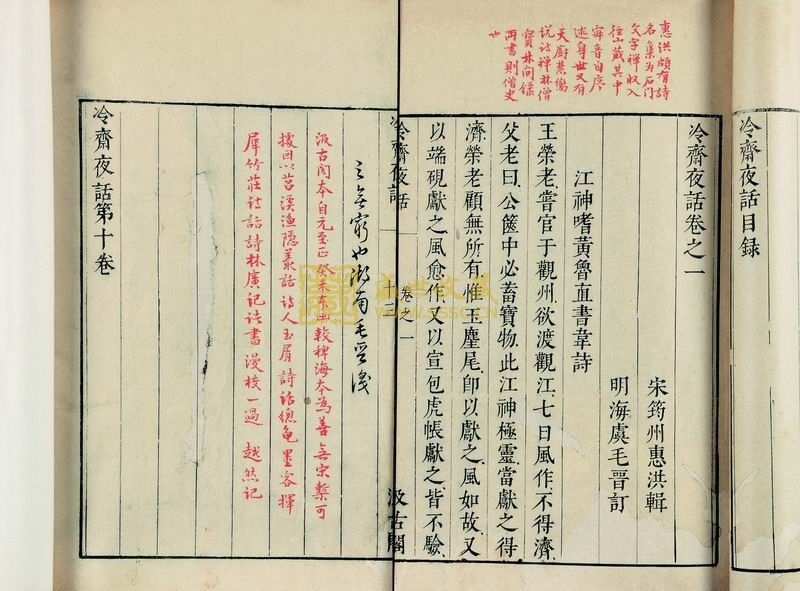 冷齋夜話目録
惠洪頗有詩
名集為石门
文字禪收入
山藏其中
寂音自序
述身世又有
天廚禁臠
説詩禪林僧
寶林间錄
两書則僧史
也
冷齋夜話卷之一
宋筠州惠洪輯
明海虞毛晉訂
江神嗜黃魯直書韋詩
王榮老嘗官于觀州欲渡觀江七日風作不得濟
父老曰公篋中必蓄寶物此江神極靈當獻之得
濟榮老顧無所有惟玉麈尾卽以獻之風如故又
以端硯獻之風愈作又以宣包虎帳獻之皆不驗
冷齋夜話
卷之一
汲古閣
之無窮也湖南毛晉識
汲古阁本自元至正癸未本出較稗海本為善無宋槧可
據因以苕溪漁隱叢話詩人玉屑詩話總龜墨客揮
犀竹莊詩話詩林廣記諸書漫校一過 越然記
冷齋夜話第十卷